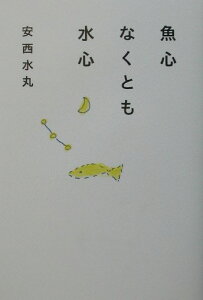 魚心
なくとも
水心
安西水丸